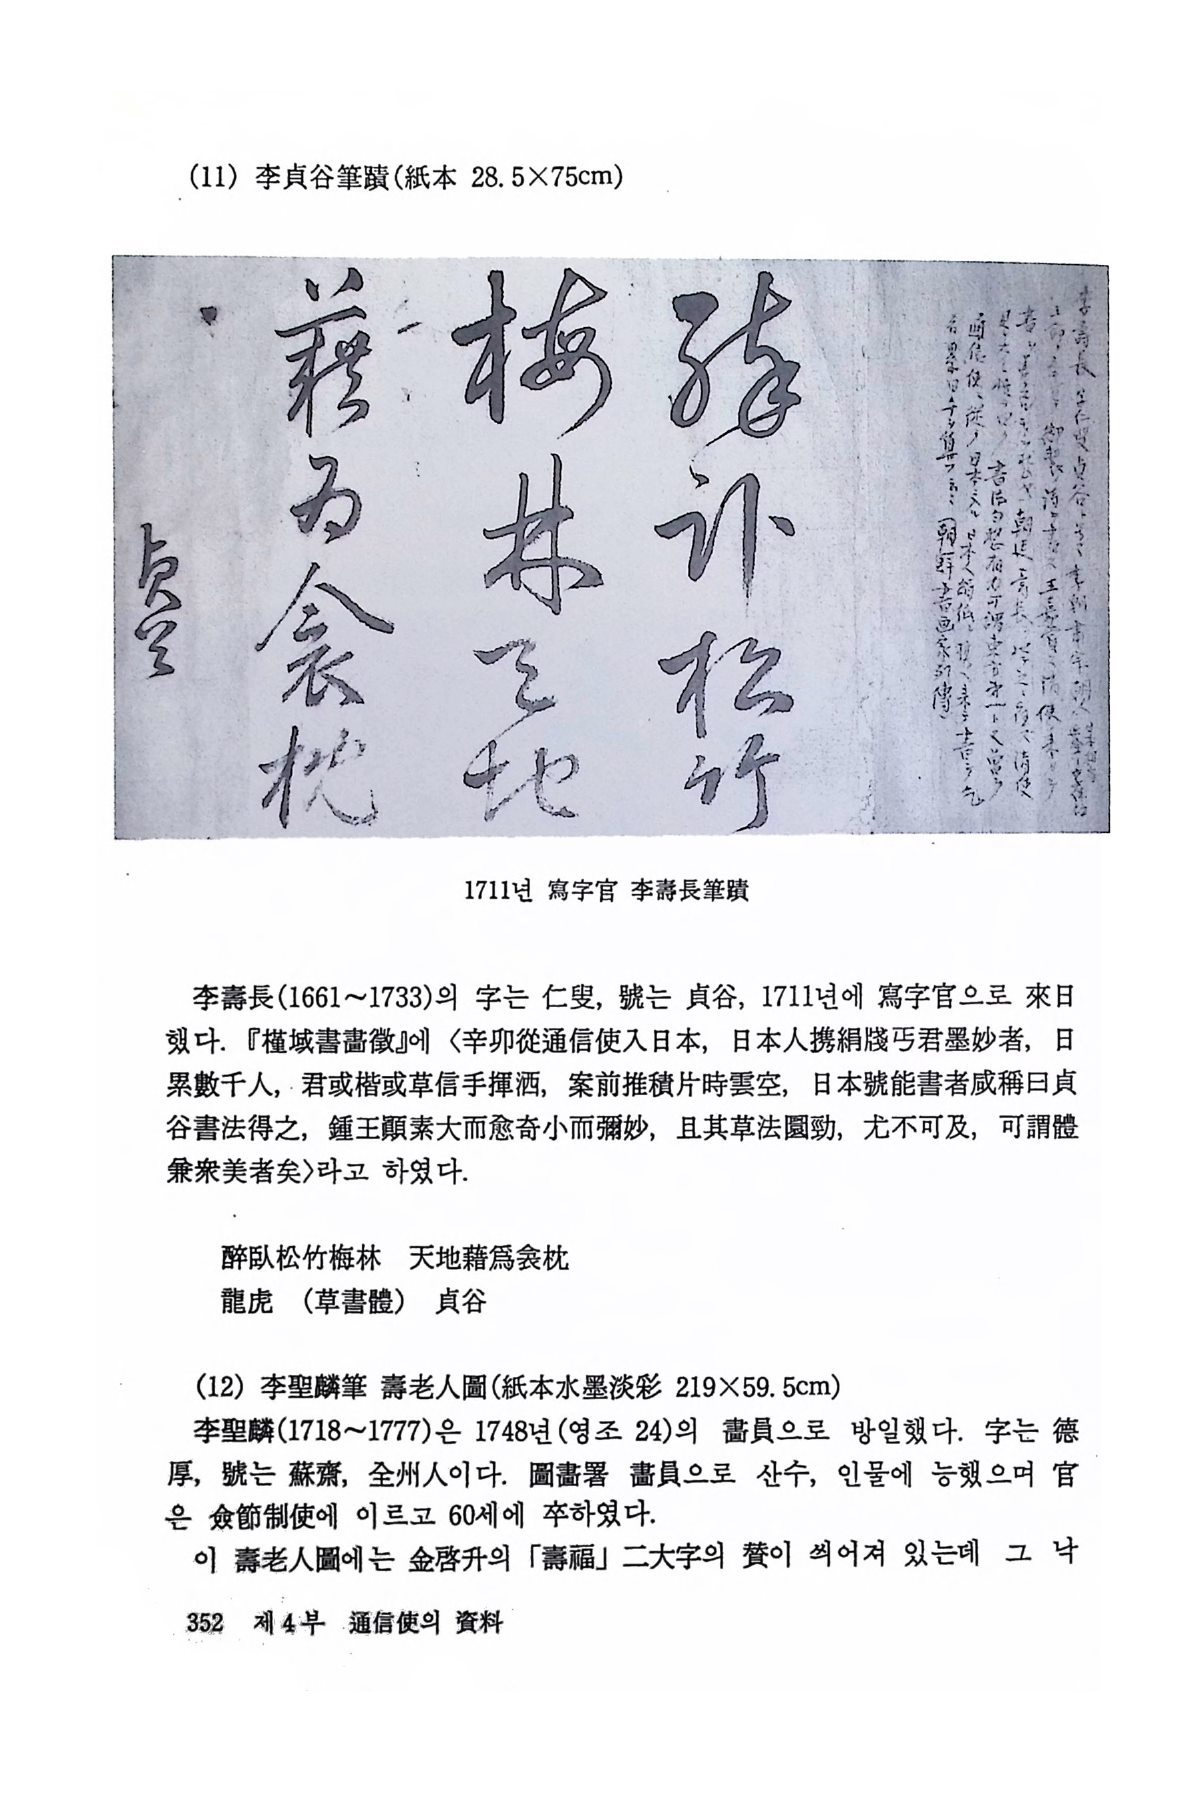 (11) 李貞谷筆蹟(紙本 28.5×75cm)
醉臥松竹
梅林天地
藉為衾枕
貞谷
1711년 寫字官 李壽長筆蹟
李壽長(1661~1733)의 字는 仁叟, 號는 貞谷, 1711년에 寫字官으로 來日
했다. 『槿域書畵徵』에 〈辛卯從通信使入日本, 日本人携絹牋丐君墨妙者, 日
累數千人, 君或楷或草信手揮洒, 案前推積片時雲空, 日本號能書者咸稱曰貞
谷書法得之, 鍾王顚素大而愈奇小而彌妙, 且其草法圓勁, 尤不可及, 可謂體
兼衆美者矣〉라고 하였다.
醉臥松竹梅林 天地藉爲衾枕
龍虎 (草書體) 貞谷
(12) 李聖麟筆 壽老人圖(紙本水墨淡彩 219×59.5cm)
李聖麟(1718~1777)은 1748년(영조 24)의 畵員으로 방일했다. 字는 德
厚, 號는 蘇齋, 全州人이다. 圖畵署 畵員으로 산수, 인물에 능했으며 官
은 僉節制使에 이르고 60세에 卒하였다.
이 壽老人圖에는 金啓升의 「壽福」 二大字의 贊이 씌어져 있는데 그 낙
352 제4부 通信使의 資料